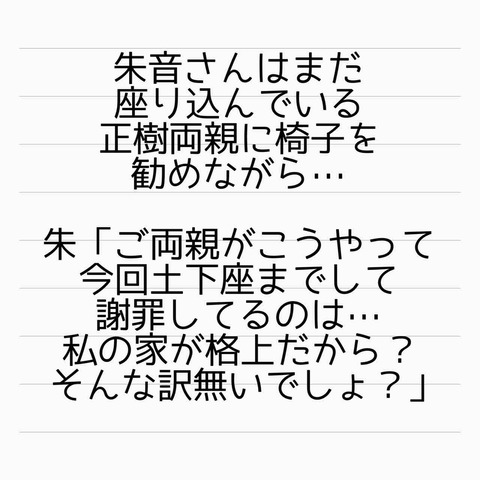 朱音さんはまだ
座り込んでいる
正樹両親に椅子を
勧めながら…
朱「ご両親がこうやって
今回土下座までして
謝罪してるのは…
私の家が格上だから？
そんな訳無いでしょ？」